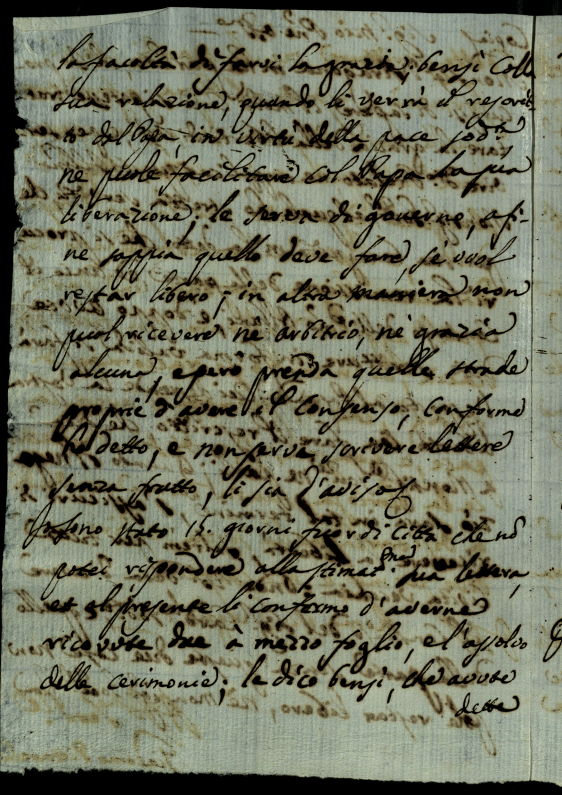 la facoltà di farvi la grazia; bensì colla
sua relazione, quando li verrà il rescrit-
to del Papa, in virtù della pace sodª,
ne puole facilitare col Papa la sua
liberazione; le serva di governo, afi-
ne sappia quello deve fare, se vuol
restar libero; in altra maniera non
puol ricevere nè arbitrio, nè grazia
alcuna, e però prenda quelle strade
proprie d'avere il consenso, conforme
ho detto, e non serva scrivere lettere
senza frutto, li sia d'aviso
sono stato 15. giorni fuor di Città che nõ
potei rispondere alla stimatma sua lettera,
et al presente li confermo d'averne
ricevute due à mezzo foglio, e l'assolvo
delle cerimonie; le dico bensì, che avute
dette